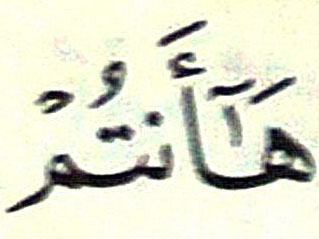 هَـٰٓأَنتُمْ